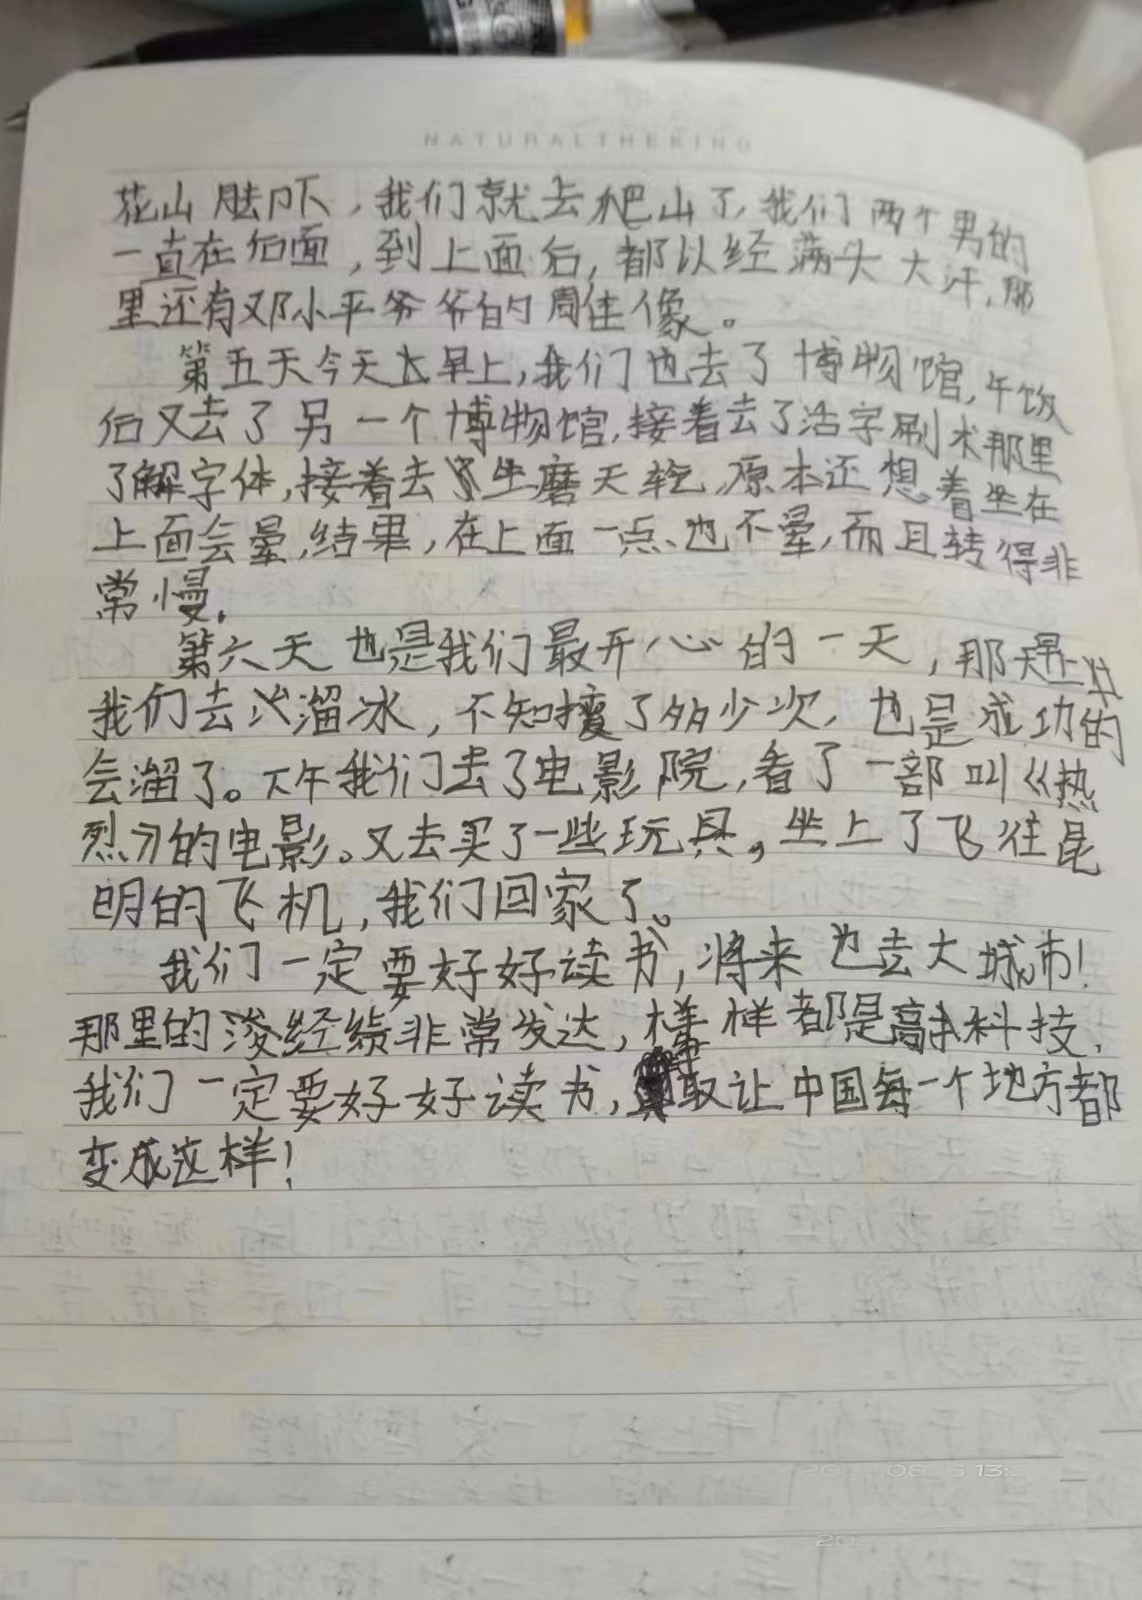 NATURALTHEKING
花山脚下,我们就去爬山了,我们两个男的
一直在后面,到上面后,都以经满头大汗,那
里还有邓小平爷爷的周佳像。
第五天今天早上,我们也去了博物馆,午饭
后又去了另一个博物馆,接着去了活字刷术那里
了解字体,接着去了坐磨天轮,原本还想着坐在
上面会晕,结果,在上面一点也不晕,而且转得非
常慢。
第六天也是我们最开心的一天,那天早上
我们去溜冰,不知摔了多少次,也是成功的
会溜了。下午我们去了电影院,看了一部叫《热
烈》的电影。又去买了一些玩具,坐上了飞往昆
明的飞机,我们回家了。
我们一定要好好读书,将来也去大城市!
那里的经绩非常发达,样样都是高科技,
我们一定要好好读书,取让中国每一个地方都
变成这样!